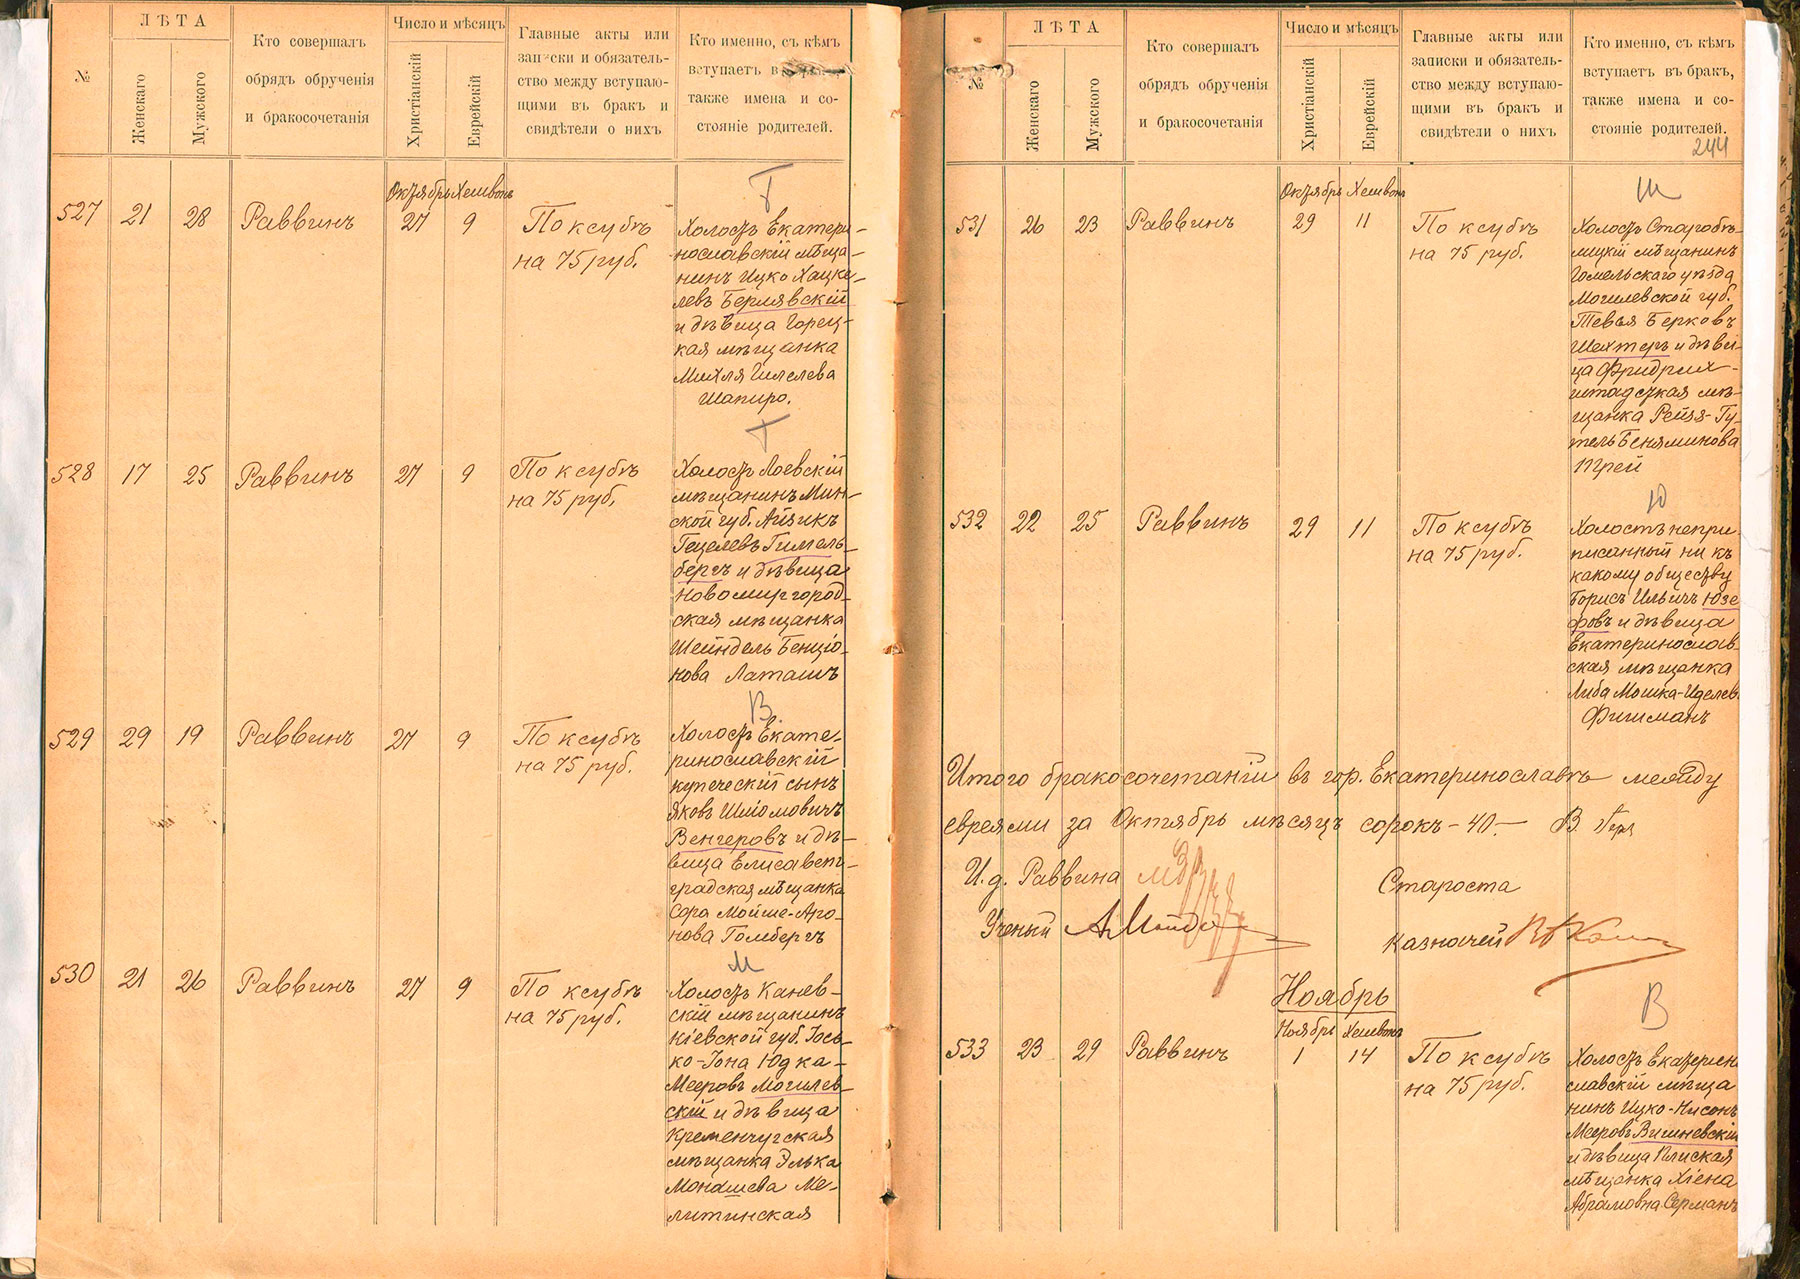 №
ЛѢТА
Женскаго
Мужского
Кто совершалъ
обрядъ обрученія
и бракосочетанія
Число и мѣсяцъ
Христіанскій
Еврейскій
Главные акты или
записки и обязатель-
ство между вступаю-
щими въ бракъ и
свидѣтели о нихъ
Кто именно, съ кѣмъ
вступаетъ въ
также имена и со-
стояніе родителей.
Октябрь Хешвонъ
527 21 28 Раввинъ 27 9
По ксубѣ
на 75 руб.
Г
Холостъ Екатери-
нославскій мѣща-
нинъ Ицко Хацке-
левъ Берлявскій
и дѣвица Горец-
кая мѣщанка
Михля Гилелева
Шапиро.
528 17 25 Раввинъ 27 9
По ксубѣ
на 75 руб.
Г
Холостъ Лоевскій
мѣщанинъ Мин-
ской губ. Айзикъ
Гецелевъ Гимель-
бергъ и дѣвица
Новомиргород-
ская мѣщанка
Шейндель Бенціо-
нова Латашъ
529 29 19 Раввинъ 27 9
По ксубѣ
на 75 руб.
В
Холостъ Екате-
ринославскій
купеческій сынъ
Яковъ Шліомовичъ
Венгеровъ и дѣ-
вица Елисавет-
градская мѣщанка
Сора Мойше-Аро-
нова Гомбергъ
530 21 26 Раввинъ 27 9
По ксубѣ
на 75 руб.
М
Холостъ Канев-
скій мѣщанинъ
Кіевской губ. Іось-
ко-Іона Юдка-
Мееровъ Могилев-
скій и дѣвица
Кременчугская
мѣщанка Элька
Монашева Ме-
литинская
№
ЛѢТА
Женскаго
Мужского
Кто совершалъ
обрядъ обрученія
и бракосочетанія
Число и мѣсяцъ
Христіанскій
Еврейскій
Главные акты или
записки и обязатель-
ство между вступаю-
щими въ бракъ и
свидѣтели о нихъ
Кто именно, съ кѣмъ
вступаетъ въ бракъ,
также имена и со-
стояніе родителей.
244
Октябрь Хешвонъ
531 26 23 Раввинъ 29 11
По ксубѣ
на 75 руб.
Ш
Холостъ Старобѣ-
лицкій мѣщанинъ
Гомельскаго уѣзда
Могилевской губ.
Тевья Берковъ
Шехтеръ и дѣви-
ца Фридрих-
штадтская мѣ-
щанка Рейзя-Гу-
тель Беняминова
Трей
532 22 25 Раввинъ 29 11
По ксубѣ
на 75 руб.
Ю
Холостъ непри-
писанный ни къ
какому обществу
Борисъ Ильичъ Юзе
фовъ и дѣвица
Екатеринослав-
ская мѣщанка
Либа Мошка-Иделев.
Фишманъ
Итого бракосочетаній въ гор. Екатеринославѣ между
евреями за Октябрь мѣсяцъ сорокъ - 40. —
И. д. Раввина
Староста
Ученый
Казначей
Ноябрь
Ноябрь Хешвонъ
533 23 29 Раввинъ 1 14
По ксубѣ
на 75 руб.
В
Холостъ Екатерин
славскій мѣща
нинъ Ицко-Нисонъ
Мееровъ Вишневскій
и дѣвица Рлиская
мѣщанка Хіена
Абрамовна Серманъ